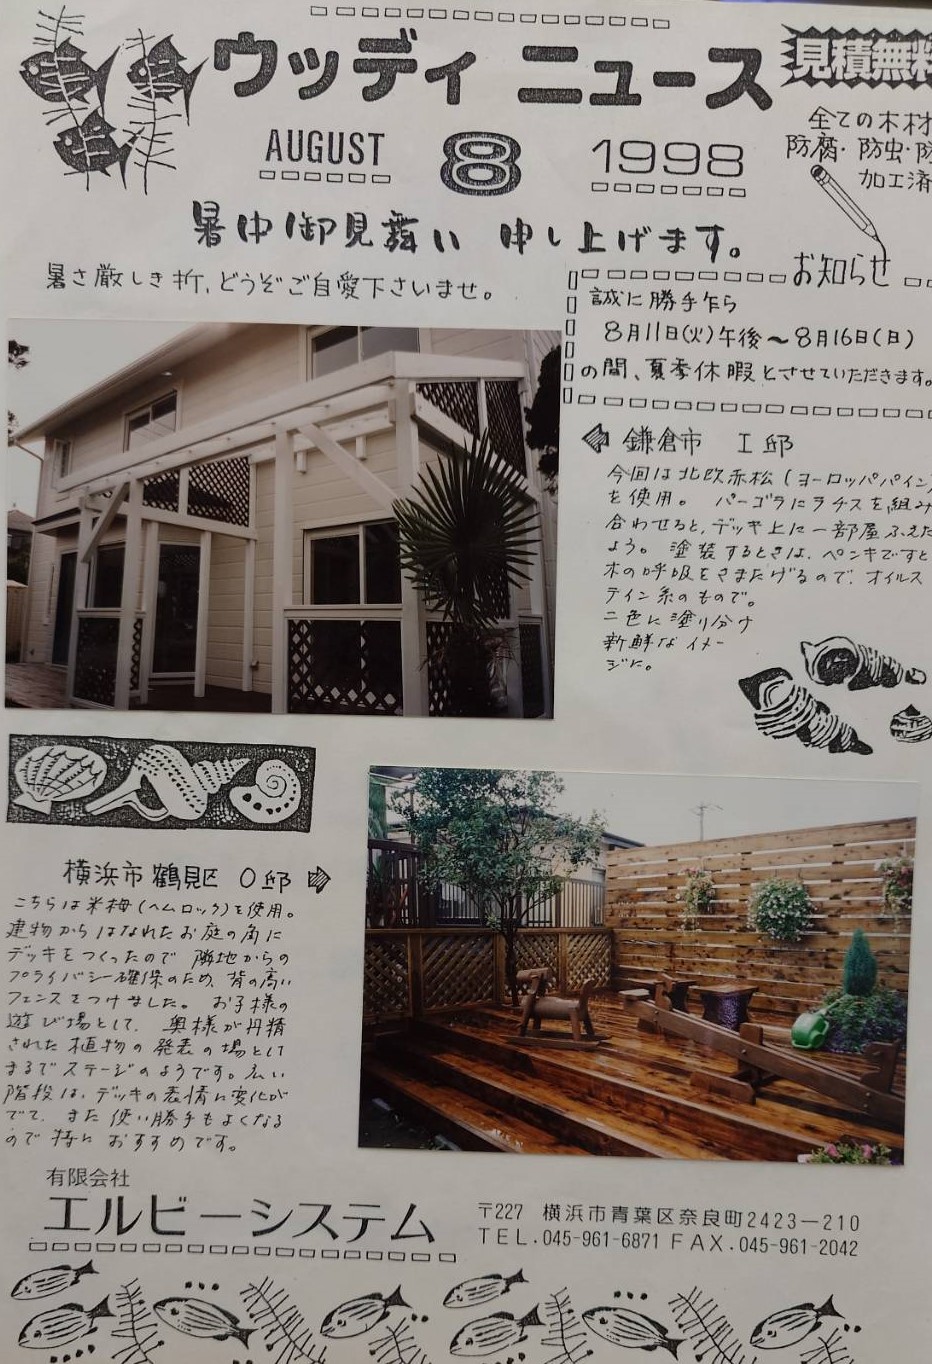 ウッディ ニュース
見積無料
AUGUST 8 1998
全ての木材
防腐・防虫・防
加工済
暑中御見舞い 申し上げます。
暑さ厳しき折、どうぞご自愛下さいませ。
お知らせ
誠に勝手乍ら
8月11日(火)午後〜8月16日(日)
の間、夏季休暇とさせていただきます。
鎌倉市 I邸
今回は北欧赤松(ヨーロッパパイン)
を使用。 パーゴラにラチスを組み
合わせると、デッキ上に一部屋ふえた
よう。 塗装するときは、ペンキですと
木の呼吸をさまたげるので、オイルス
テイン系のもので。
二色に塗り分け
新鮮なイメー
ジに。
横浜市鶴見区 O邸
こちらは米栂(ヘムロック)を使用。
建物からはなれたお庭の角に
デッキをつくったので 隣地からの
プライバシー確保のため、背の高い
フェンスをつけました。 お子様の
遊び場として、 奥様が丹精
された植物の発表の場として
まるでステージのようです。広い
階段は、デッキの表情に変化が
でて、また使い勝手もよくなる
ので特におすすめです。
有限会社
エルビーシステム
〒227 横浜市青葉区奈良町2423−210
TEL.045-961-6871 FAX.045-961-2042